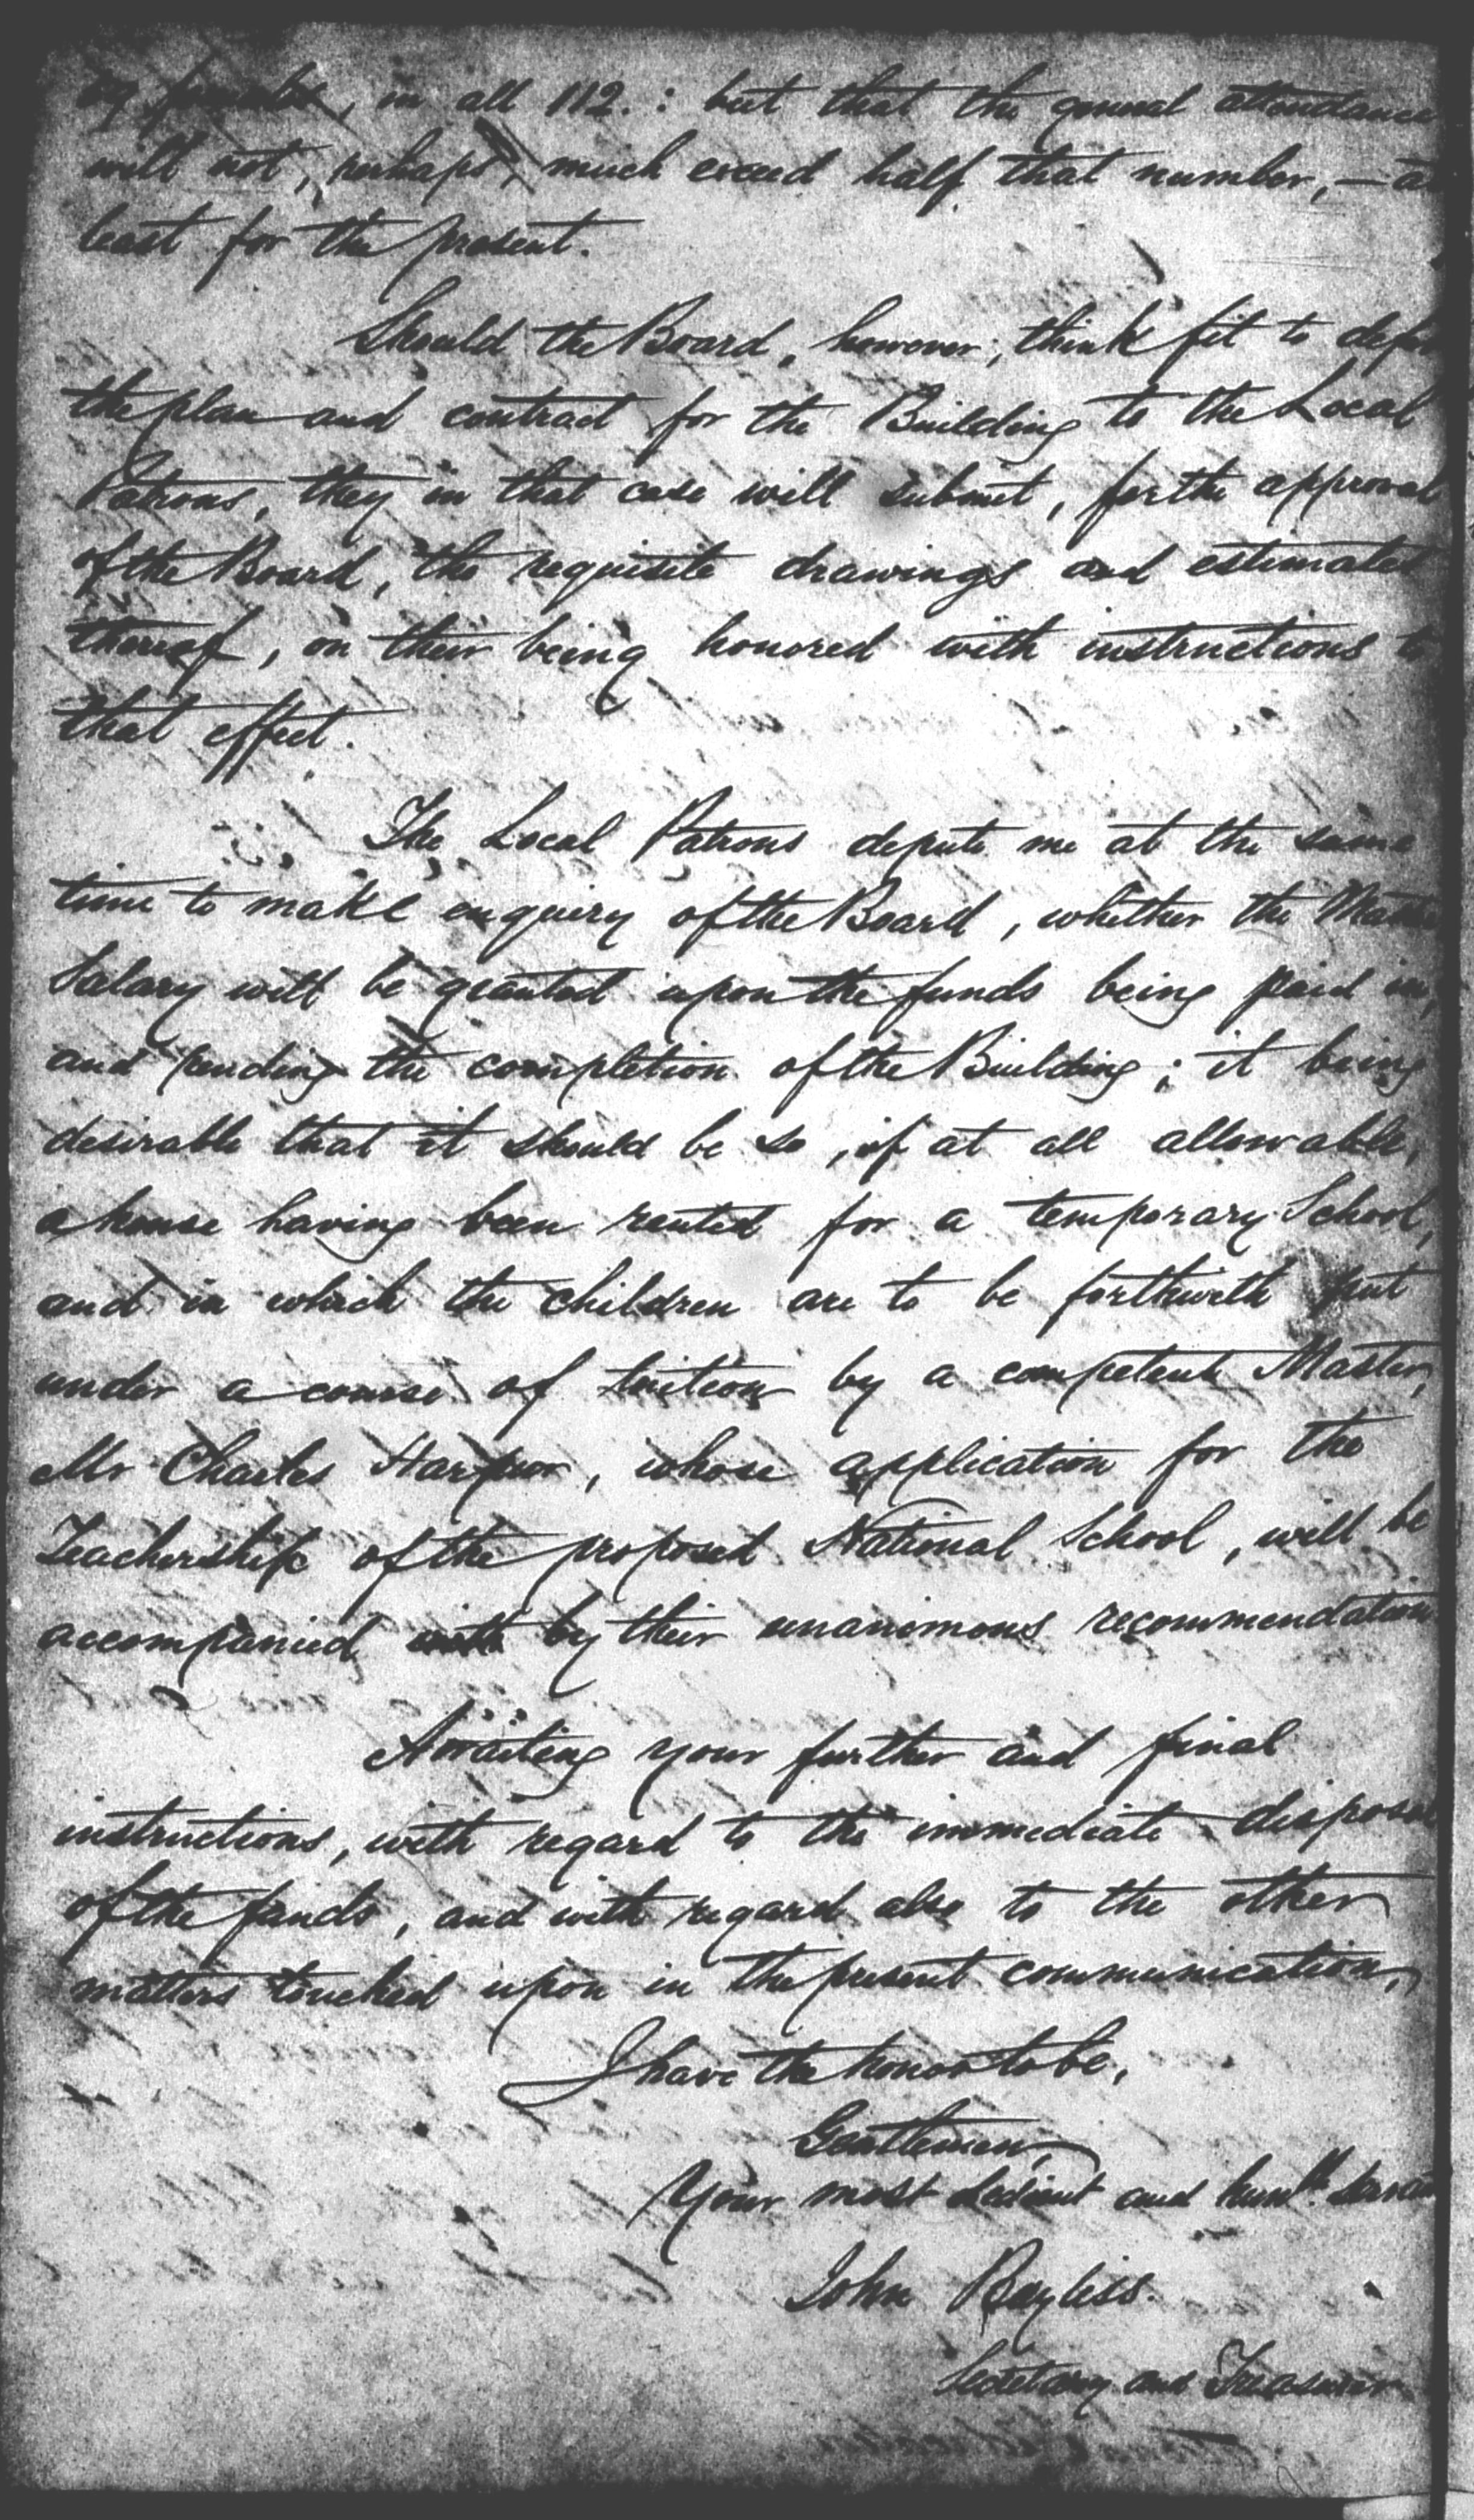 females, in all 112. : but that the general attendance
will not, perhaps, much exceed half that number, — at
least for the present.
Should the Board, however, think fit to defer
the plan and contract for the Building to the Local
Patrons, they in that case will submit, for the approval
of the Board, the requisite drawings and estimates
thereof, on their being honored with instructions to
that effect.
The Local Patrons depute me at the same
time to make enquiry of the Board, whether the
Salary will be granted upon the funds being paid in,
and pending the completion of the Building; it being
desirable that it should be so, if at all allowable,
a house having been rented for a temporary School,
and in which the children are to be forthwith put
under a course of tuition by a competent Master,
Mr Charles Harpur, whose application for the
Teachership of the proposed National School, will be
accompanied with by their unanimous recommendation
Awaiting your further and final
instructions, with regard to the immediate disposal
of the funds, and with regard also to the other
matters touched upon in the present communication,
I have the honor to be,
Gentlemen,
Your most obedient and humb. Servant
John Bayliss.
Secretary and Treasurer